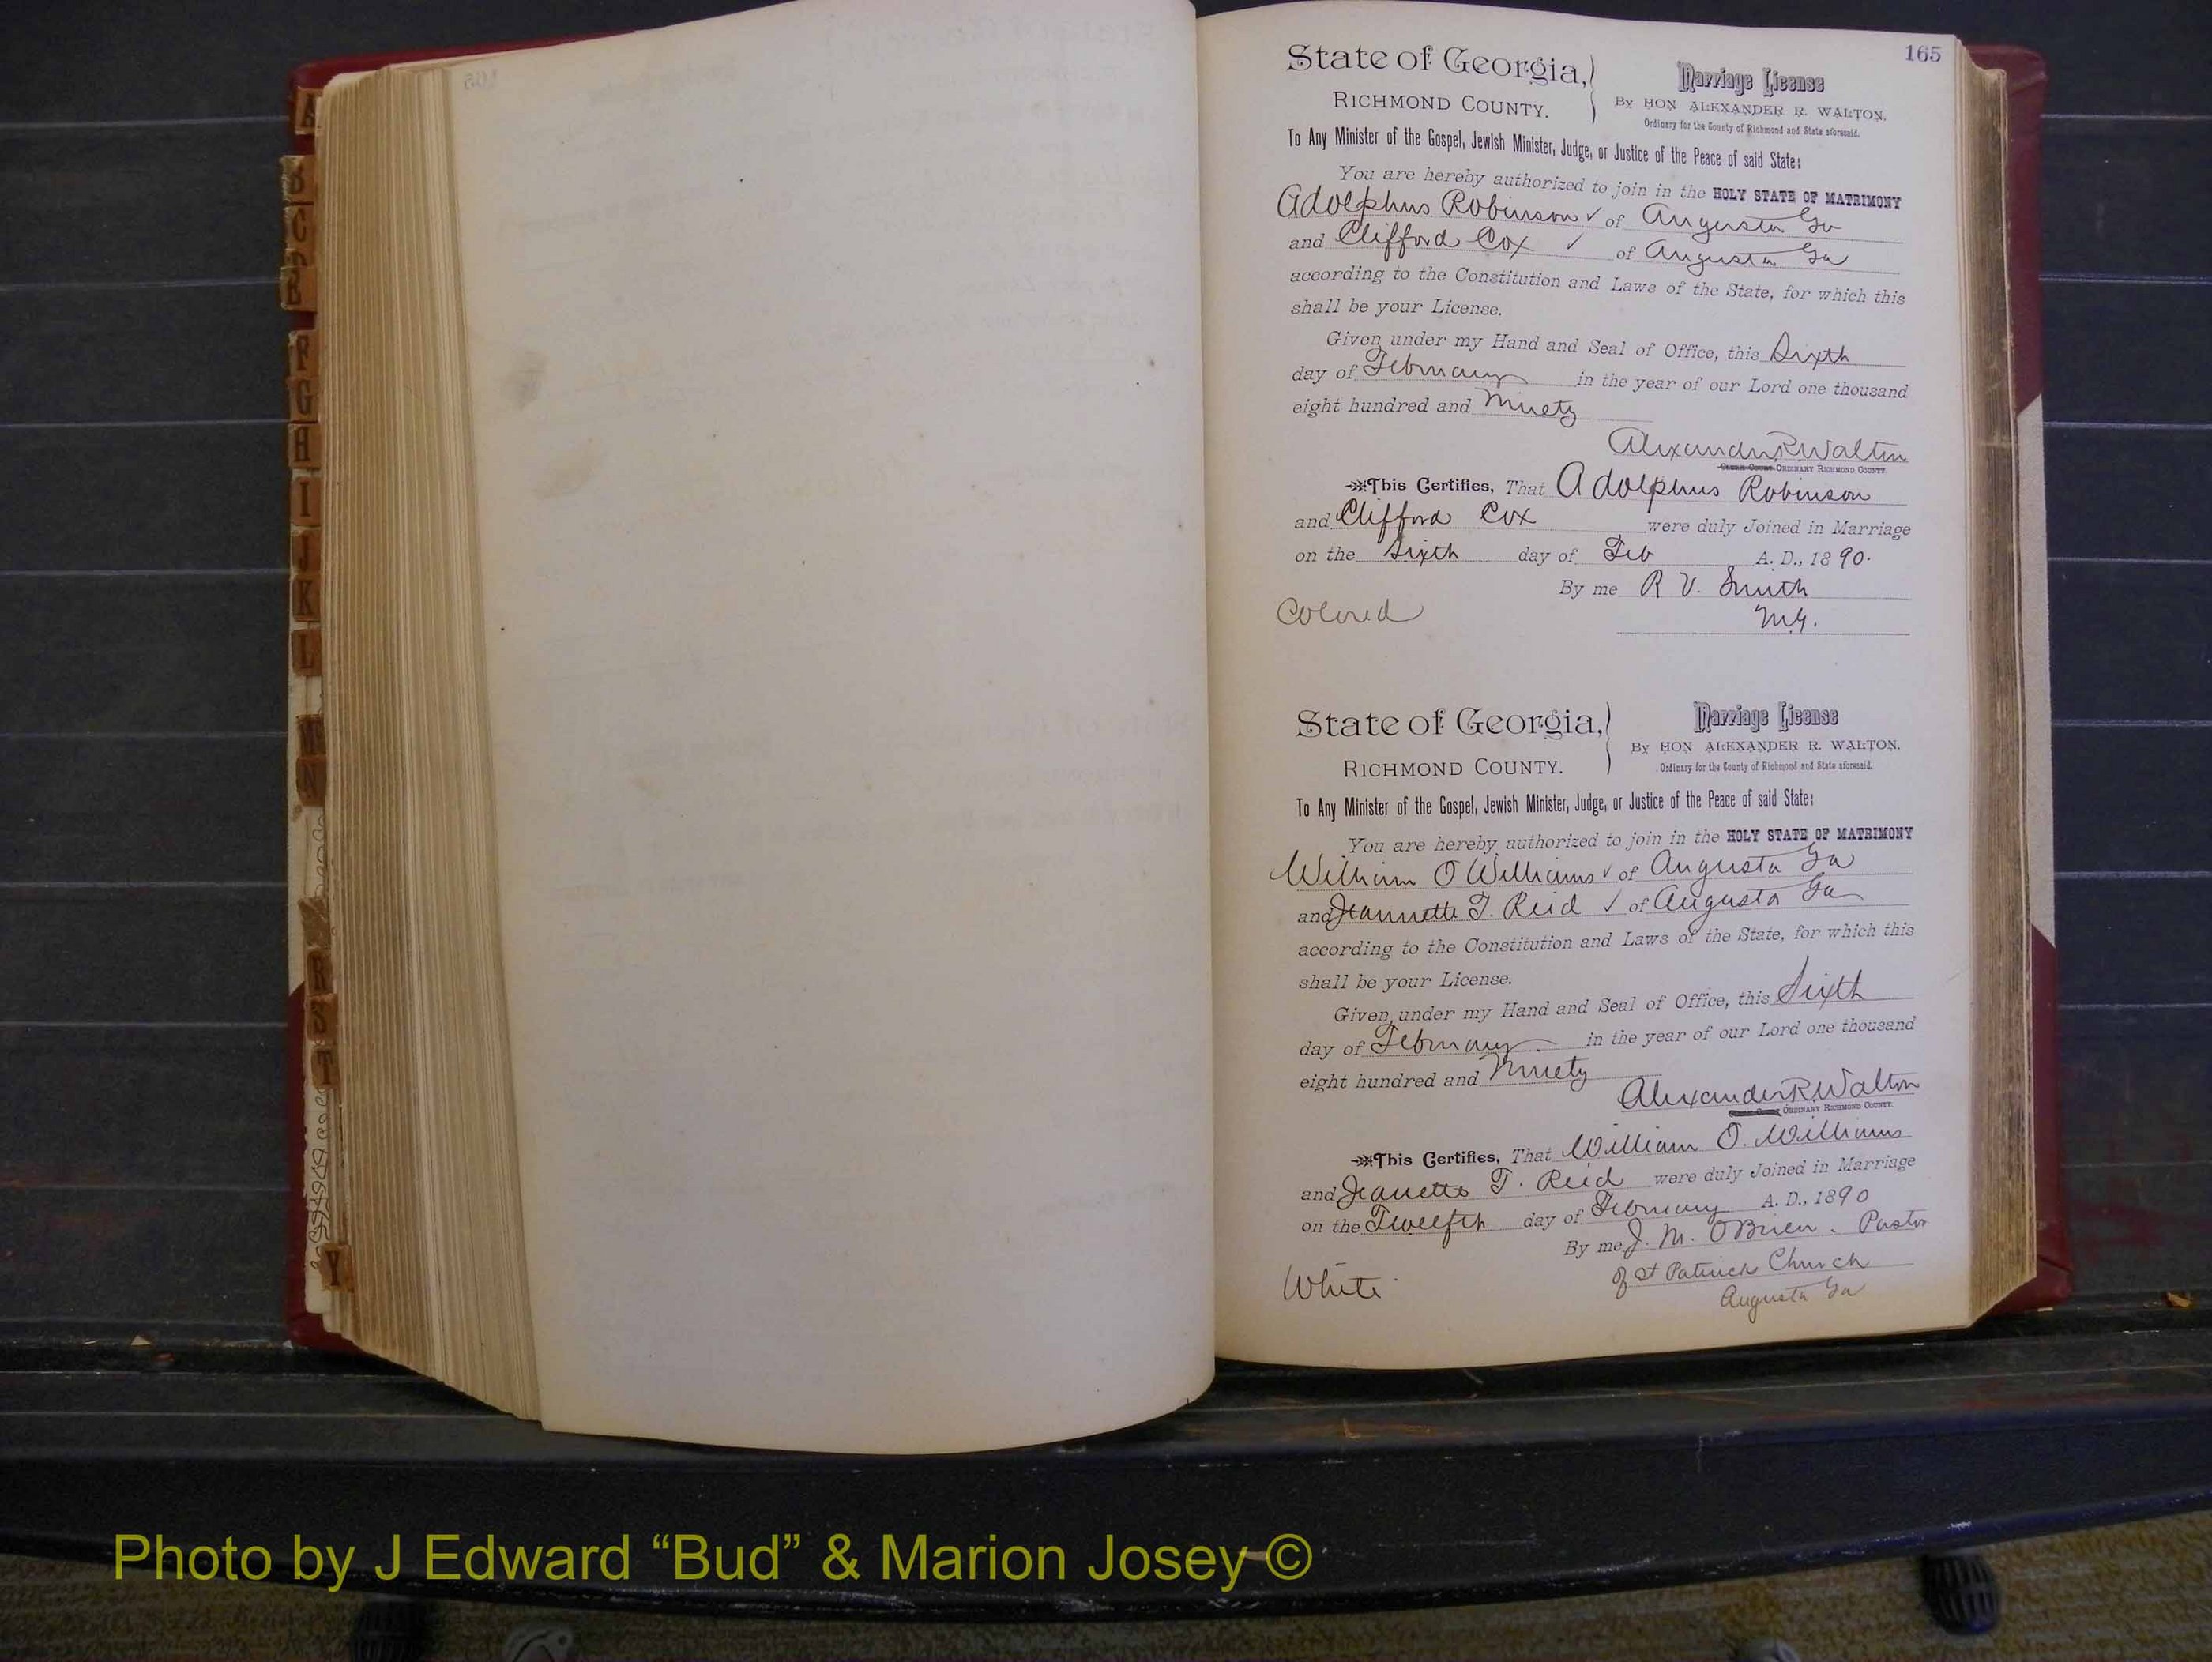 165
State of Georgia,
RICHMOND COUNTY.
Marriage License
By HON ALEXANDER R. WALTON,
Ordinary for the County of Richmond and State aforesaid.
To Any Minister of the Gospel, Jewish Minister, Judge, or Justice of the Peace of said State:
You are hereby authorized to join in the HOLY STATE OF MATRIMONY
Adolphus Robinson ✓ of Augusta Ga
and Clifford Cox ✓ of Augusta Ga
according to the Constitution and Laws of the State, for which this
shall be your License.
Given under my Hand and Seal of Office, this Sixth
day of February in the year of our Lord one thousand
eight hundred and Ninety
Alexander R Walton
ORDINARY RICHMOND COUNTY.
This Certifies, That Adolphus Robinson
and Clifford Cox were duly Joined in Marriage
on the Sixth day of Feb A. D., 1890.
By me R V. Smith
M.G.
Colored
State of Georgia,
RICHMOND COUNTY.
Marriage License
By HON ALEXANDER R. WALTON.
Ordinary for the County of Richmond and State aforesaid.
To Any Minister of the Gospel, Jewish Minister, Judge, or Justice of the Peace of said State:
You are hereby authorized to join in the HOLY STATE OF MATRIMONY
William O Williams ✓ of Augusta Ga
and Jeannette T. Reid ✓ of Augusta Ga
according to the Constitution and Laws of the State, for which this
shall be your License.
Given under my Hand and Seal of Office, this Sixth
day of February in the year of our Lord one thousand
eight hundred and Ninety
Alexander R. Walton
ORDINARY RICHMOND COUNTY.
This Certifies, That William O. Williams
and Jeanette T. Reid were duly Joined in Marriage
on the Twelfth day of February A. D., 1890
By me J. M. OBrien. Pastor
of St Patrick Church
Augusta Ga
White
B
C
F
G
H
I
J
K
L
N
R
S
T
Y
Photo by J Edward “Bud” & Marion Josey ©